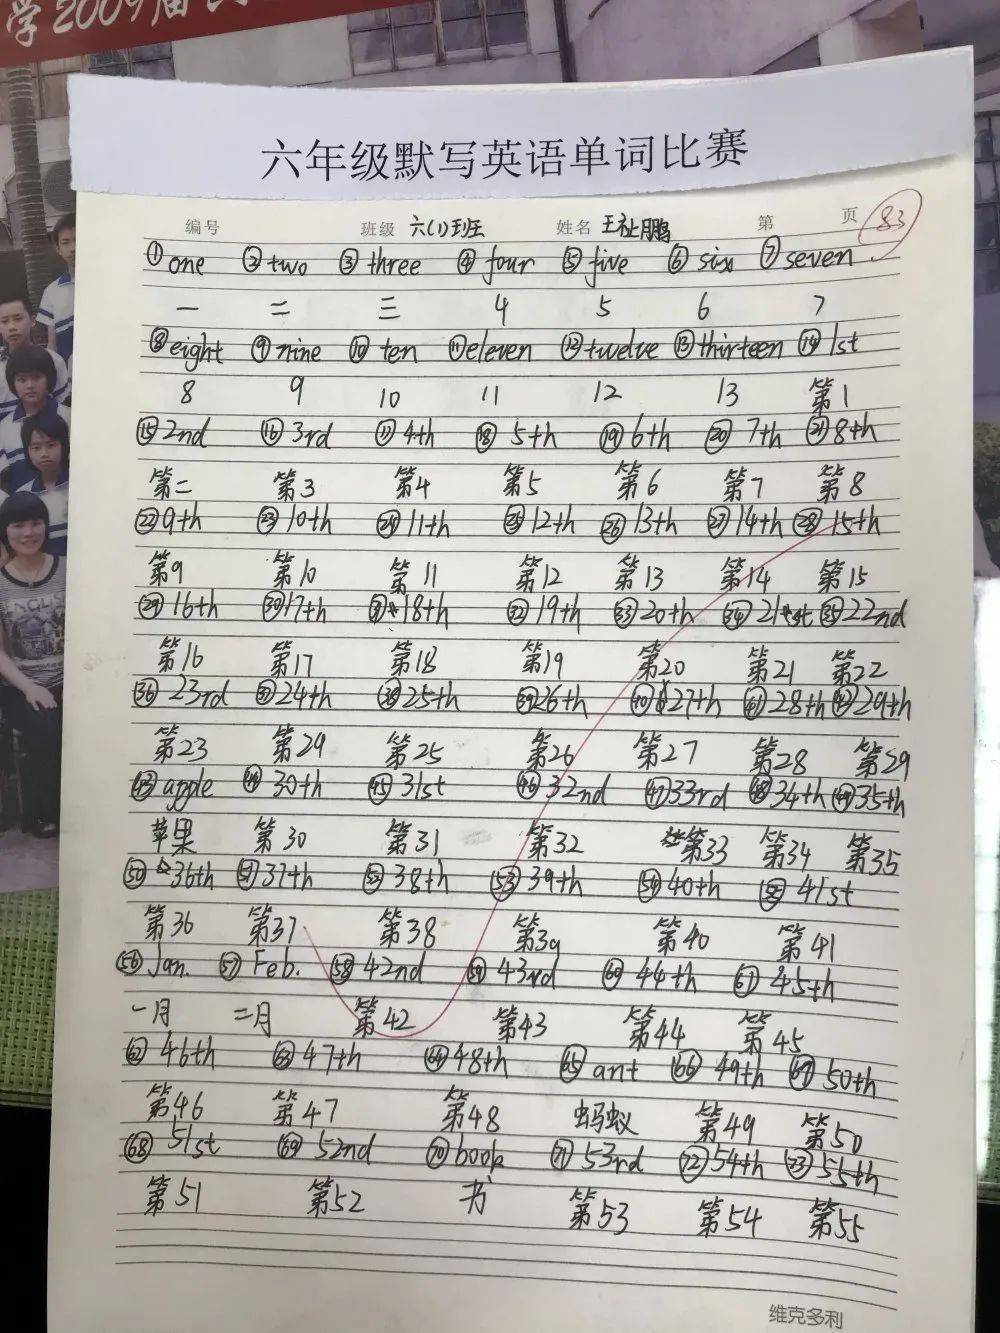 学2009届
六年级默写英语单词比赛
编号 班级 六(1)班 姓名 王祉鹏 第 页 83
① one ② two ③ three ④ four ⑤ five ⑥ six ⑦ seven
一 二 三 4 5 6 7
⑧ eight ⑨ nine ⑩ ten ⑪ eleven ⑫ twelve ⑬ thirteen ⑭ 1st
8 9 10 11 12 13 第1
⑮ 2nd ⑯ 3rd ⑰ 4th ⑱ 5th ⑲ 6th ⑳ 7th ㉑ 8th
第二 第3 第4 第5 第6 第7 第8
㉒ 9th ㉓ 10th ㉔ 11th ㉕ 12th ㉖ 13th ㉗ 14th ㉘ 15th
第9 第10 第11 第12 第13 第14 第15
㉙ 16th ㉚ 17th ㉛ 18th ㉜ 19th ㉝ 20th ㉞ 21st ㉟ 22nd
第16 第17 第18 第19 第20 第21 第22
㊱ 23rd ㊲ 24th ㊳ 25th ㊴ 26th ㊵ 27th ㊶ 28th ㊷ 29th
第23 第29 第25 第26 第27 第28 第29
㊸ apple ㊹ 30th ㊺ 31st ㊻ 32nd ㊼ 33rd ㊽ 34th ㊾ 35th
苹果 第30 第31 第32 第33 第34 第35
㊿ 36th 51 37th 52 38th 53 39th 54 40th 55 41st
第36 第37 第38 第39 第40 第41
56 Jan. 57 Feb. 58 42nd 59 43rd 60 44th 61 45th
一月 二月 第42 第43 第44 第45
62 46th 63 47th 64 48th 65 ant 66 49th 67 50th
第46 第47 第48 蚂蚁 第49 第50
68 51st 69 52nd 70 book 71 53rd 72 54th 73 55th
第51 第52 书 第53 第54 第55
维克多利